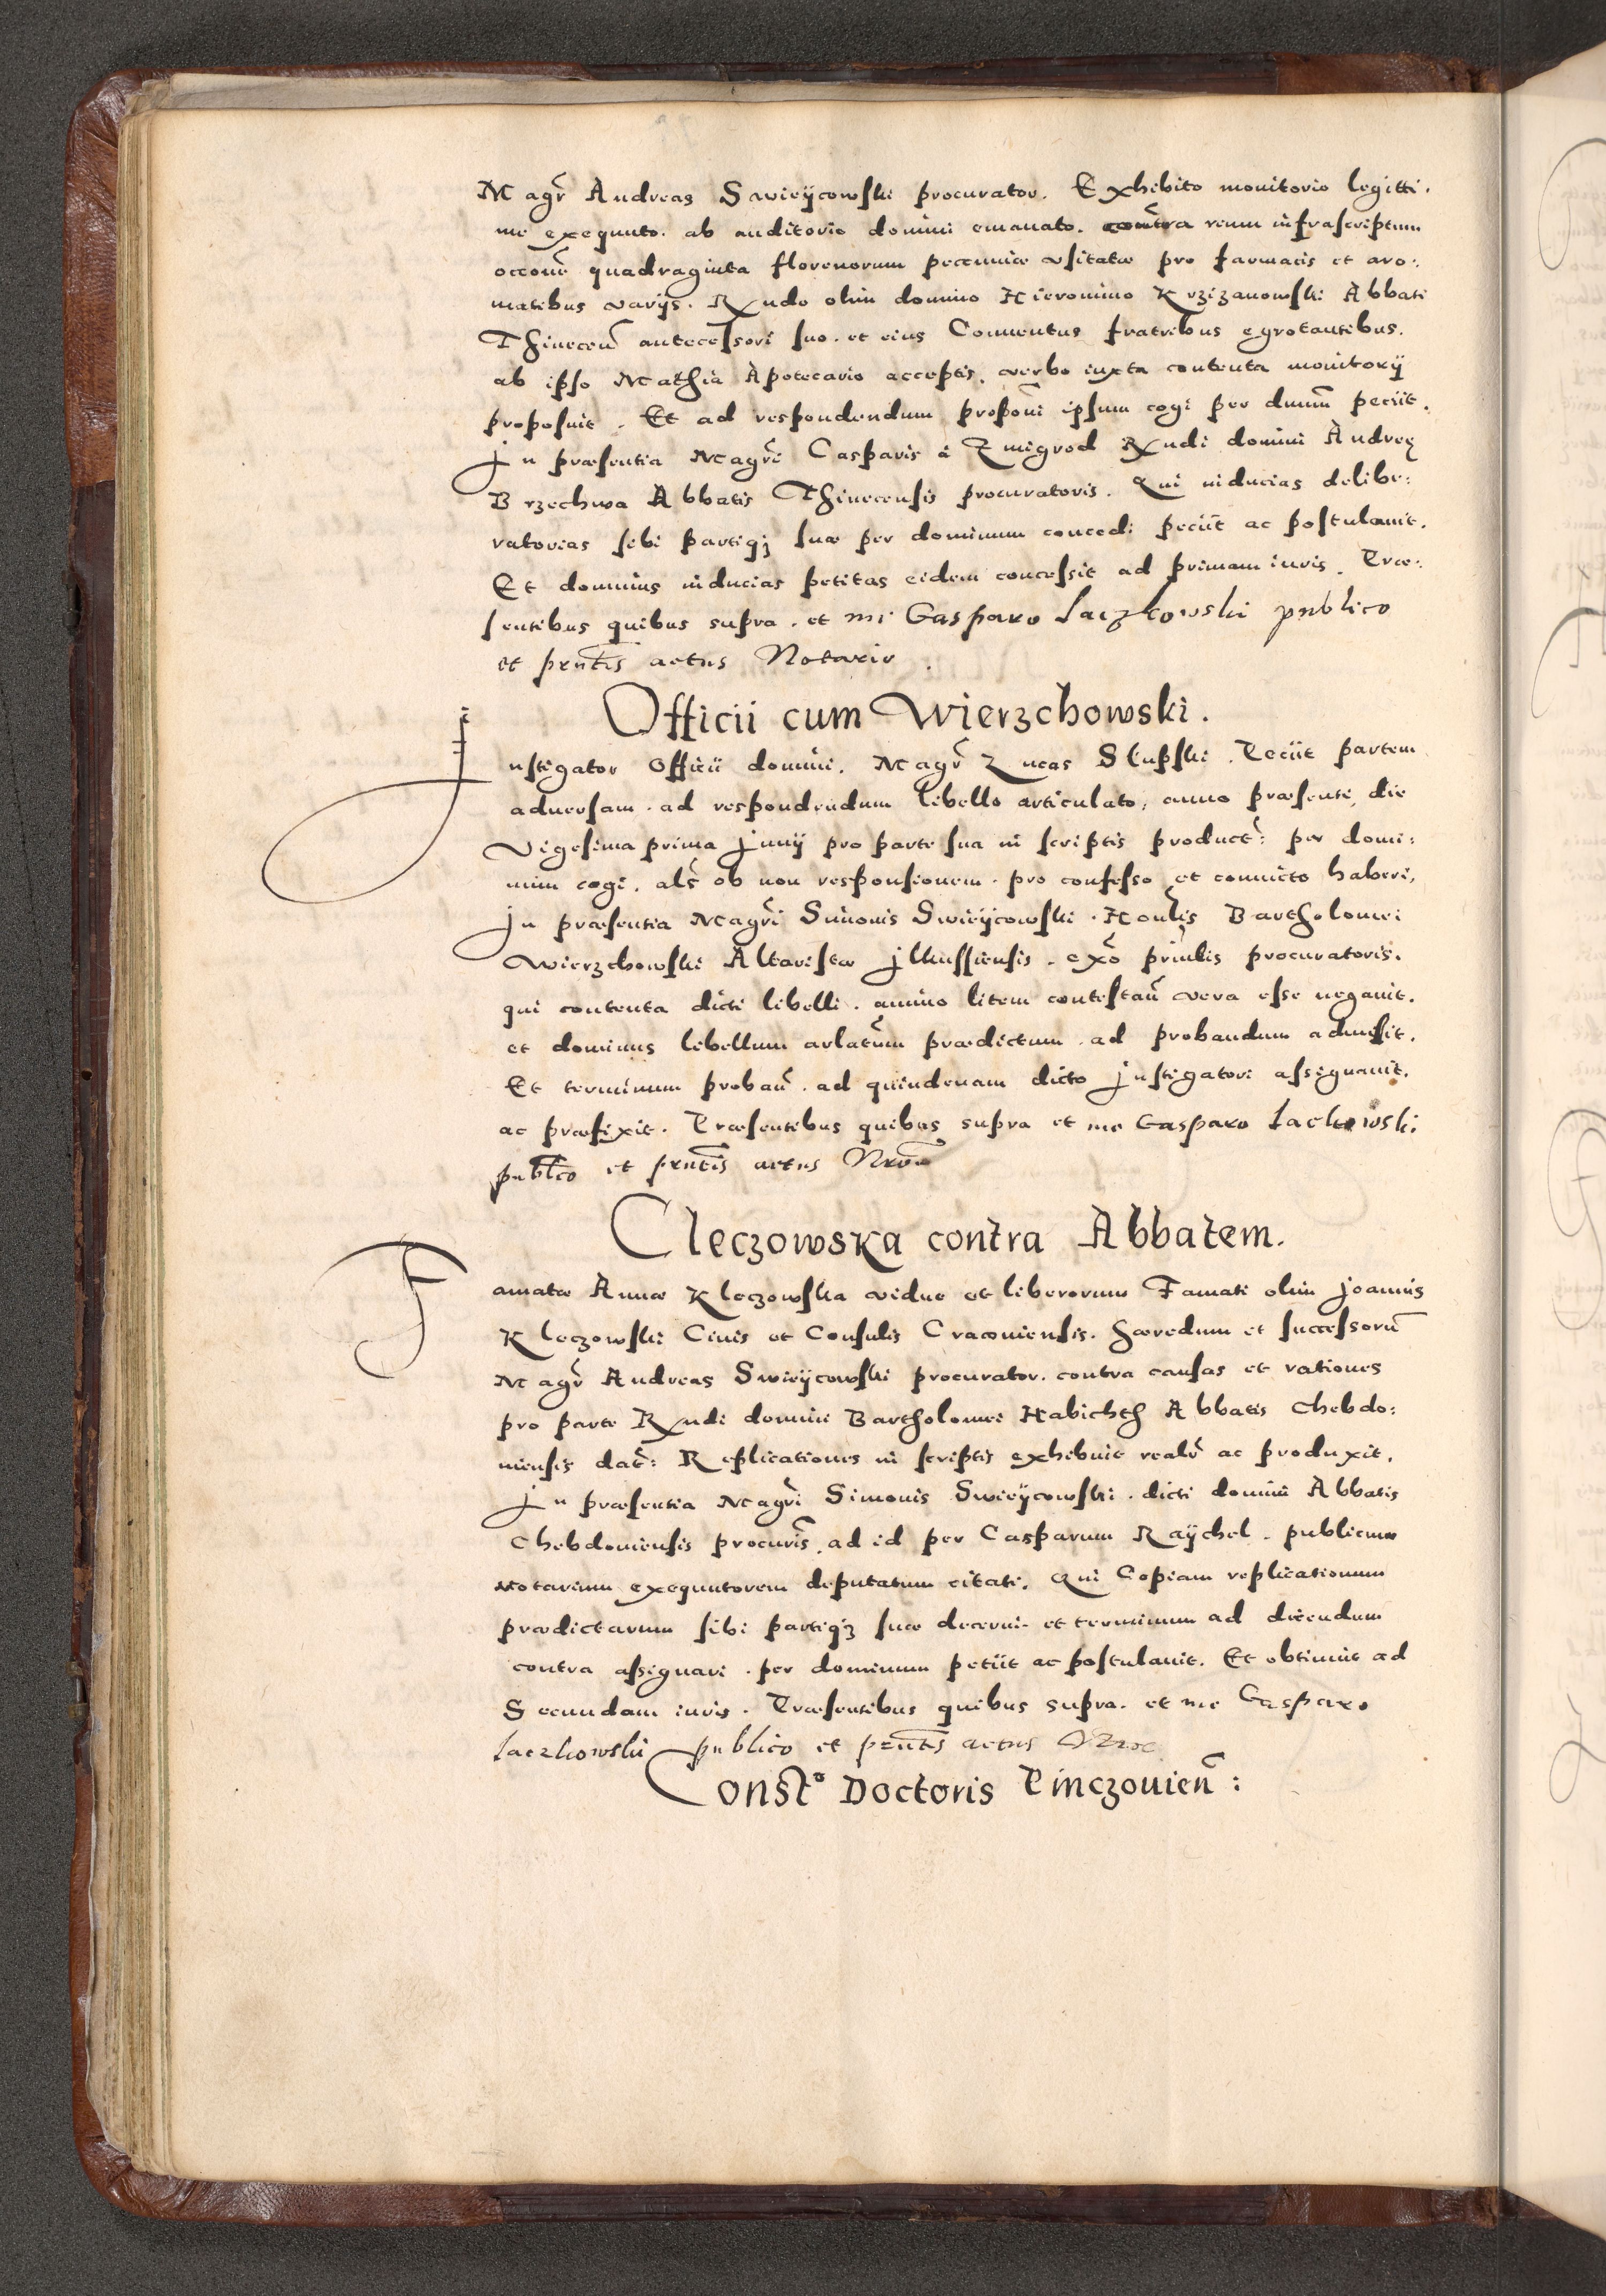 Magr̃ Andreas Swieÿcowski procurator. Exhibito monitorio legitti.
me exequuto. ab auditorio domini emanato. contra reum infrascriptum
occoñe quadraginta florenorum pecuniæ vsitatæ pro farmacis et aro:
matibus varijs. Rx̃ndo olim domino Hieronimo Krzizanowski Abbati
Thinecen̄ antecessori suo. et eius Conuentus fratribus egrotantibus.
ab ipso Mathia Apotecario acceptis. verbo iuxta contenta monitorij
proposuit. Et ad respondendum propoñi ipsum cogi per dnum̄ peciit.
Jn præsentia Magr̃i Casparis à Zmigrod Rx̃ndi domini Andreę
Brzechwa Abbatis Thinecensis procuratoris. Qui inducias delibe:
ratorias sibi partiqʒ suæ per dominum concedi peciit ac postulauit.
Et dominus inducias petitas eidem concessit ad primam iuris. Præ:
sentibus quibus supra. et me Gasparo Laczkowski publico
et prn̄tis actus Notario.
Officii cum Wierzchowski.
Jnstigator Officii domini. Magr̃ Lucas Slupski. Peciit partem
aduersam. ad respondendum libello articulato, anno præsenti, die
Vigesima prima Junij pro parte sua in scriptis product̃: per domi:
num cogi. als̃ ob non responsionem. pro confesso et conuicto haberi,
Jn præsentia Magr̃i Simonis Swieÿcowski. Hon̄lis Bartholomei
Wierzchowski Altaristæ Jlkussiensis. exõ prin̄lis procuratoris.
qui contenta dicti libelli. animo litem contestan̄ vera esse negauit.
et dominus libellum arlatum̃ prædictum. ad probandum admisit.
Et terminum proban̄. ad quindenam dicto Jnstigatori assignauit.
ac præfixit. Præsentibus quibus supra et me Gasparo Lackowski
publ̄co et prn̄tis actus Nrõ
Cleczowska contra Abbatem.
Famatæ Annæ Kleczowska viduæ et liberorum Famati olim Joannis
Kleczowski Ciuis et Consulis Cracouiensis. hæredum et successorū
Magr̃ Andreas Swieÿcowski procurator. contra causas et rationes
pro parte Rx̃ndi domini Bartholomei Habichth Abbatis Chebdo:
uiensis dat̃: Replicationes in scriptis exhibuit realr̃ ac produxit.
Jn præsentia Magr̃i Simonis Swieÿcowski. dicti domini Abbatis
Chebdouiensis procuris̃, ad id per Casparum Raÿchel. publicum
notarium exequutorem deputatum citati. Qui Copiam replicationum
prædictarum sibi partiqʒ suæ decerni. et terminum ad dicendum
contra assignari. per dominum petiit ac postulauit. Et obtinuit ad
Secundam iuris. Præsentibus quibus supra. et me Gasparo
Laczkowski publico et prn̄tis actus
Constᵒ Doctoris Pinczouien̄: